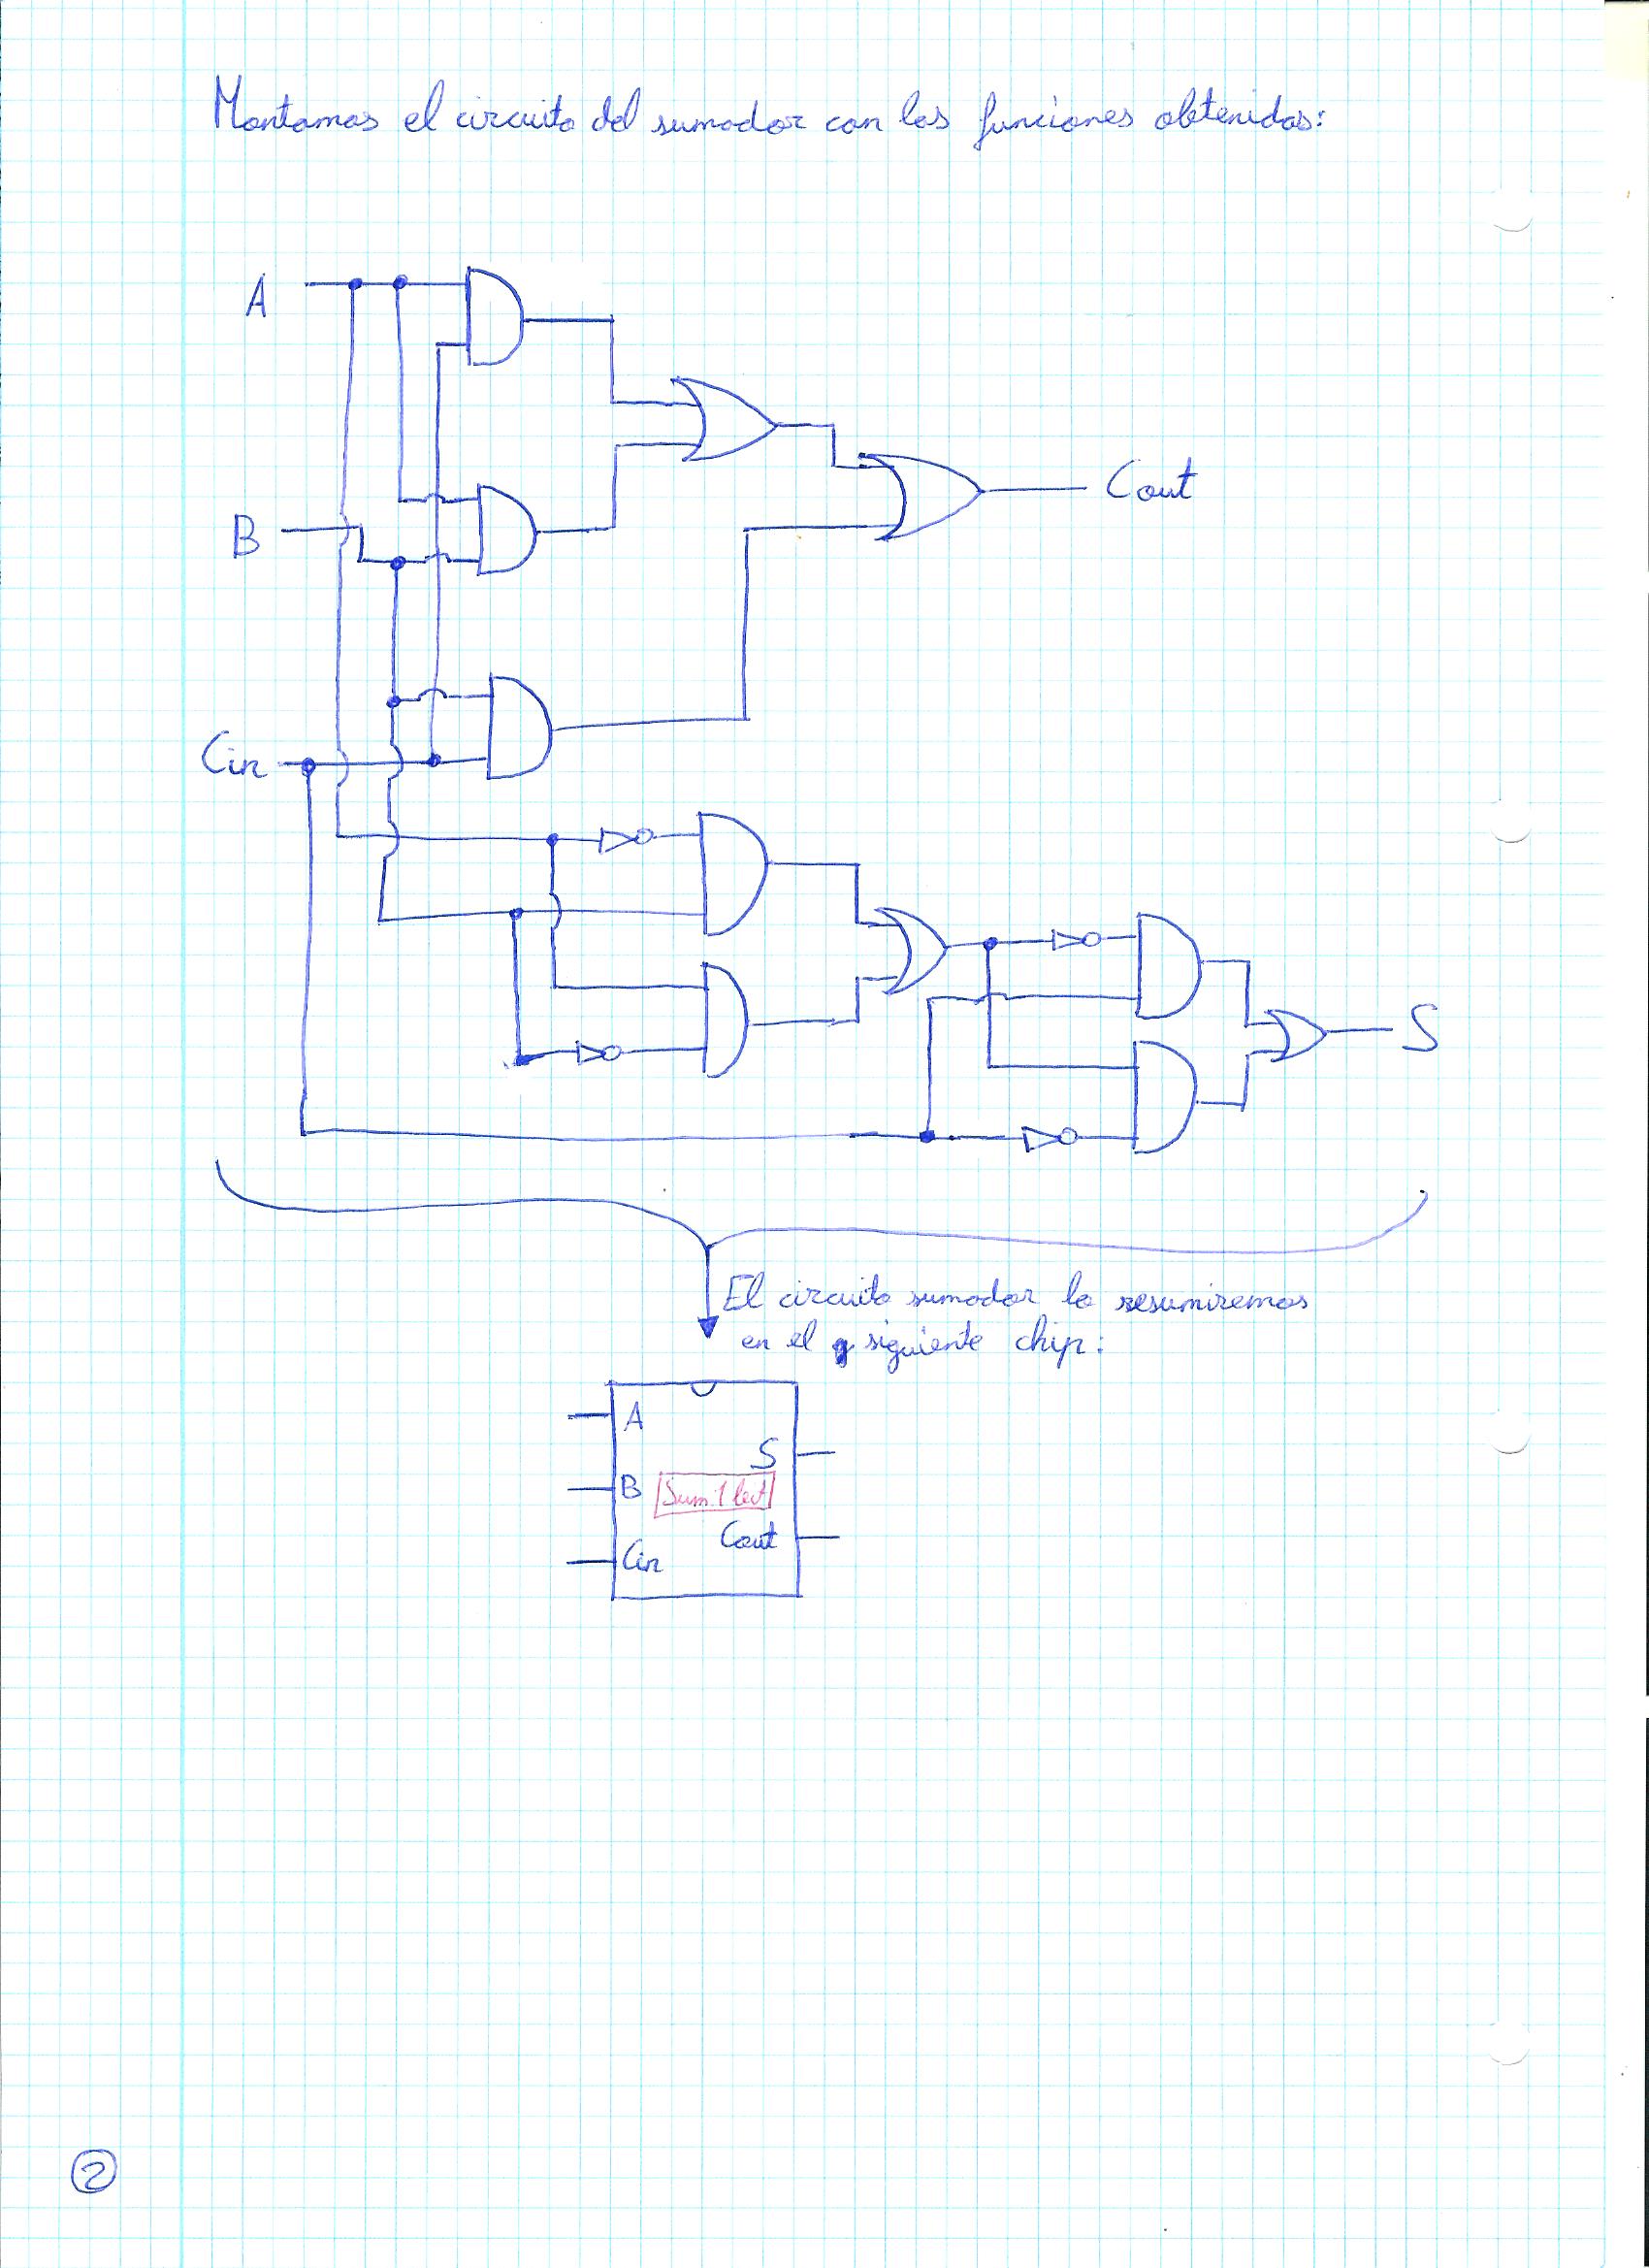 Montamos el circuito del sumador con las funciones obtenidas:
A
B
Cin
Cout
S
El circuito sumador lo resumiremos
en el siguiente chip:
A
S
B
Sum. 1 bit
Cout
Cin
2